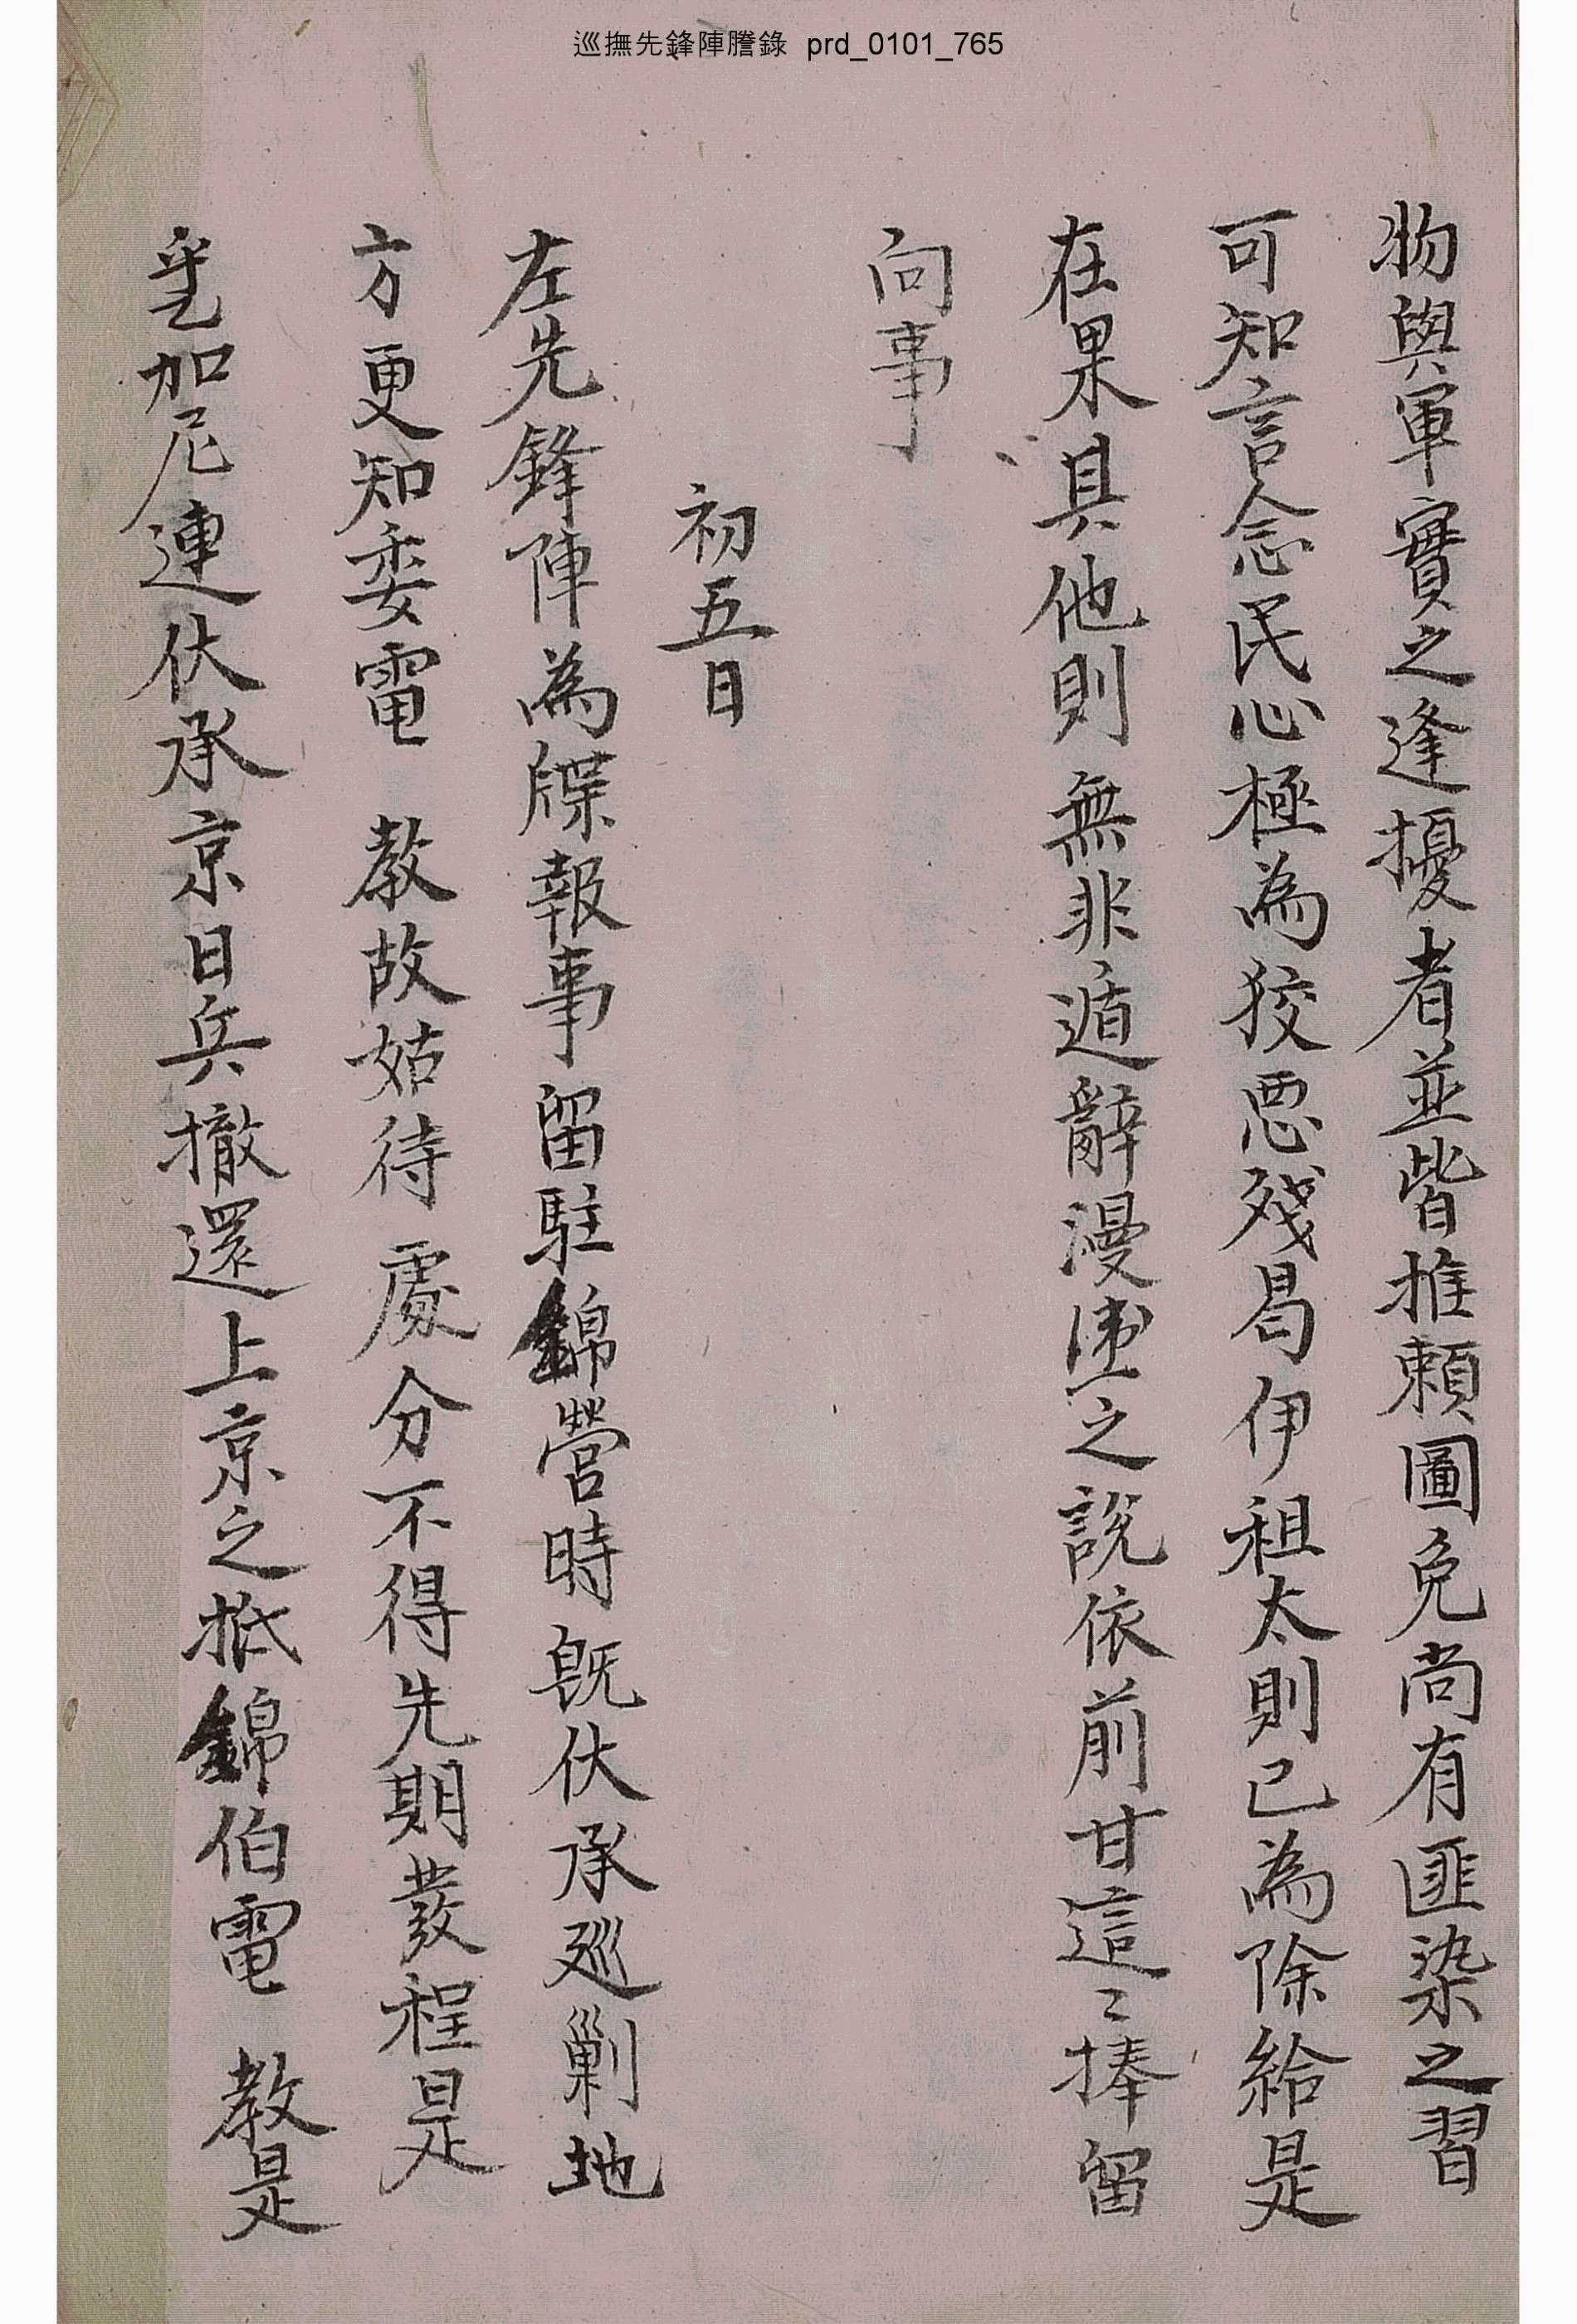 巡撫先鋒陣謄錄 prd_0101_765
物與軍實之逢擾者並皆推賴圖免尚有匪染之習
可知言念民心極爲狡悪殘曷伊祖太則已爲除給是
在果其他則無非遁辭漫漶之說依前甘這〻捧留
向事
初五日
左先鋒陣為牒報事留駐錦營時旣伏承廵剿地
方更知委電 教故姑待 處分不得先期發程是
乎加尼連伏承京日兵撤還上京之抵錦伯電 教是